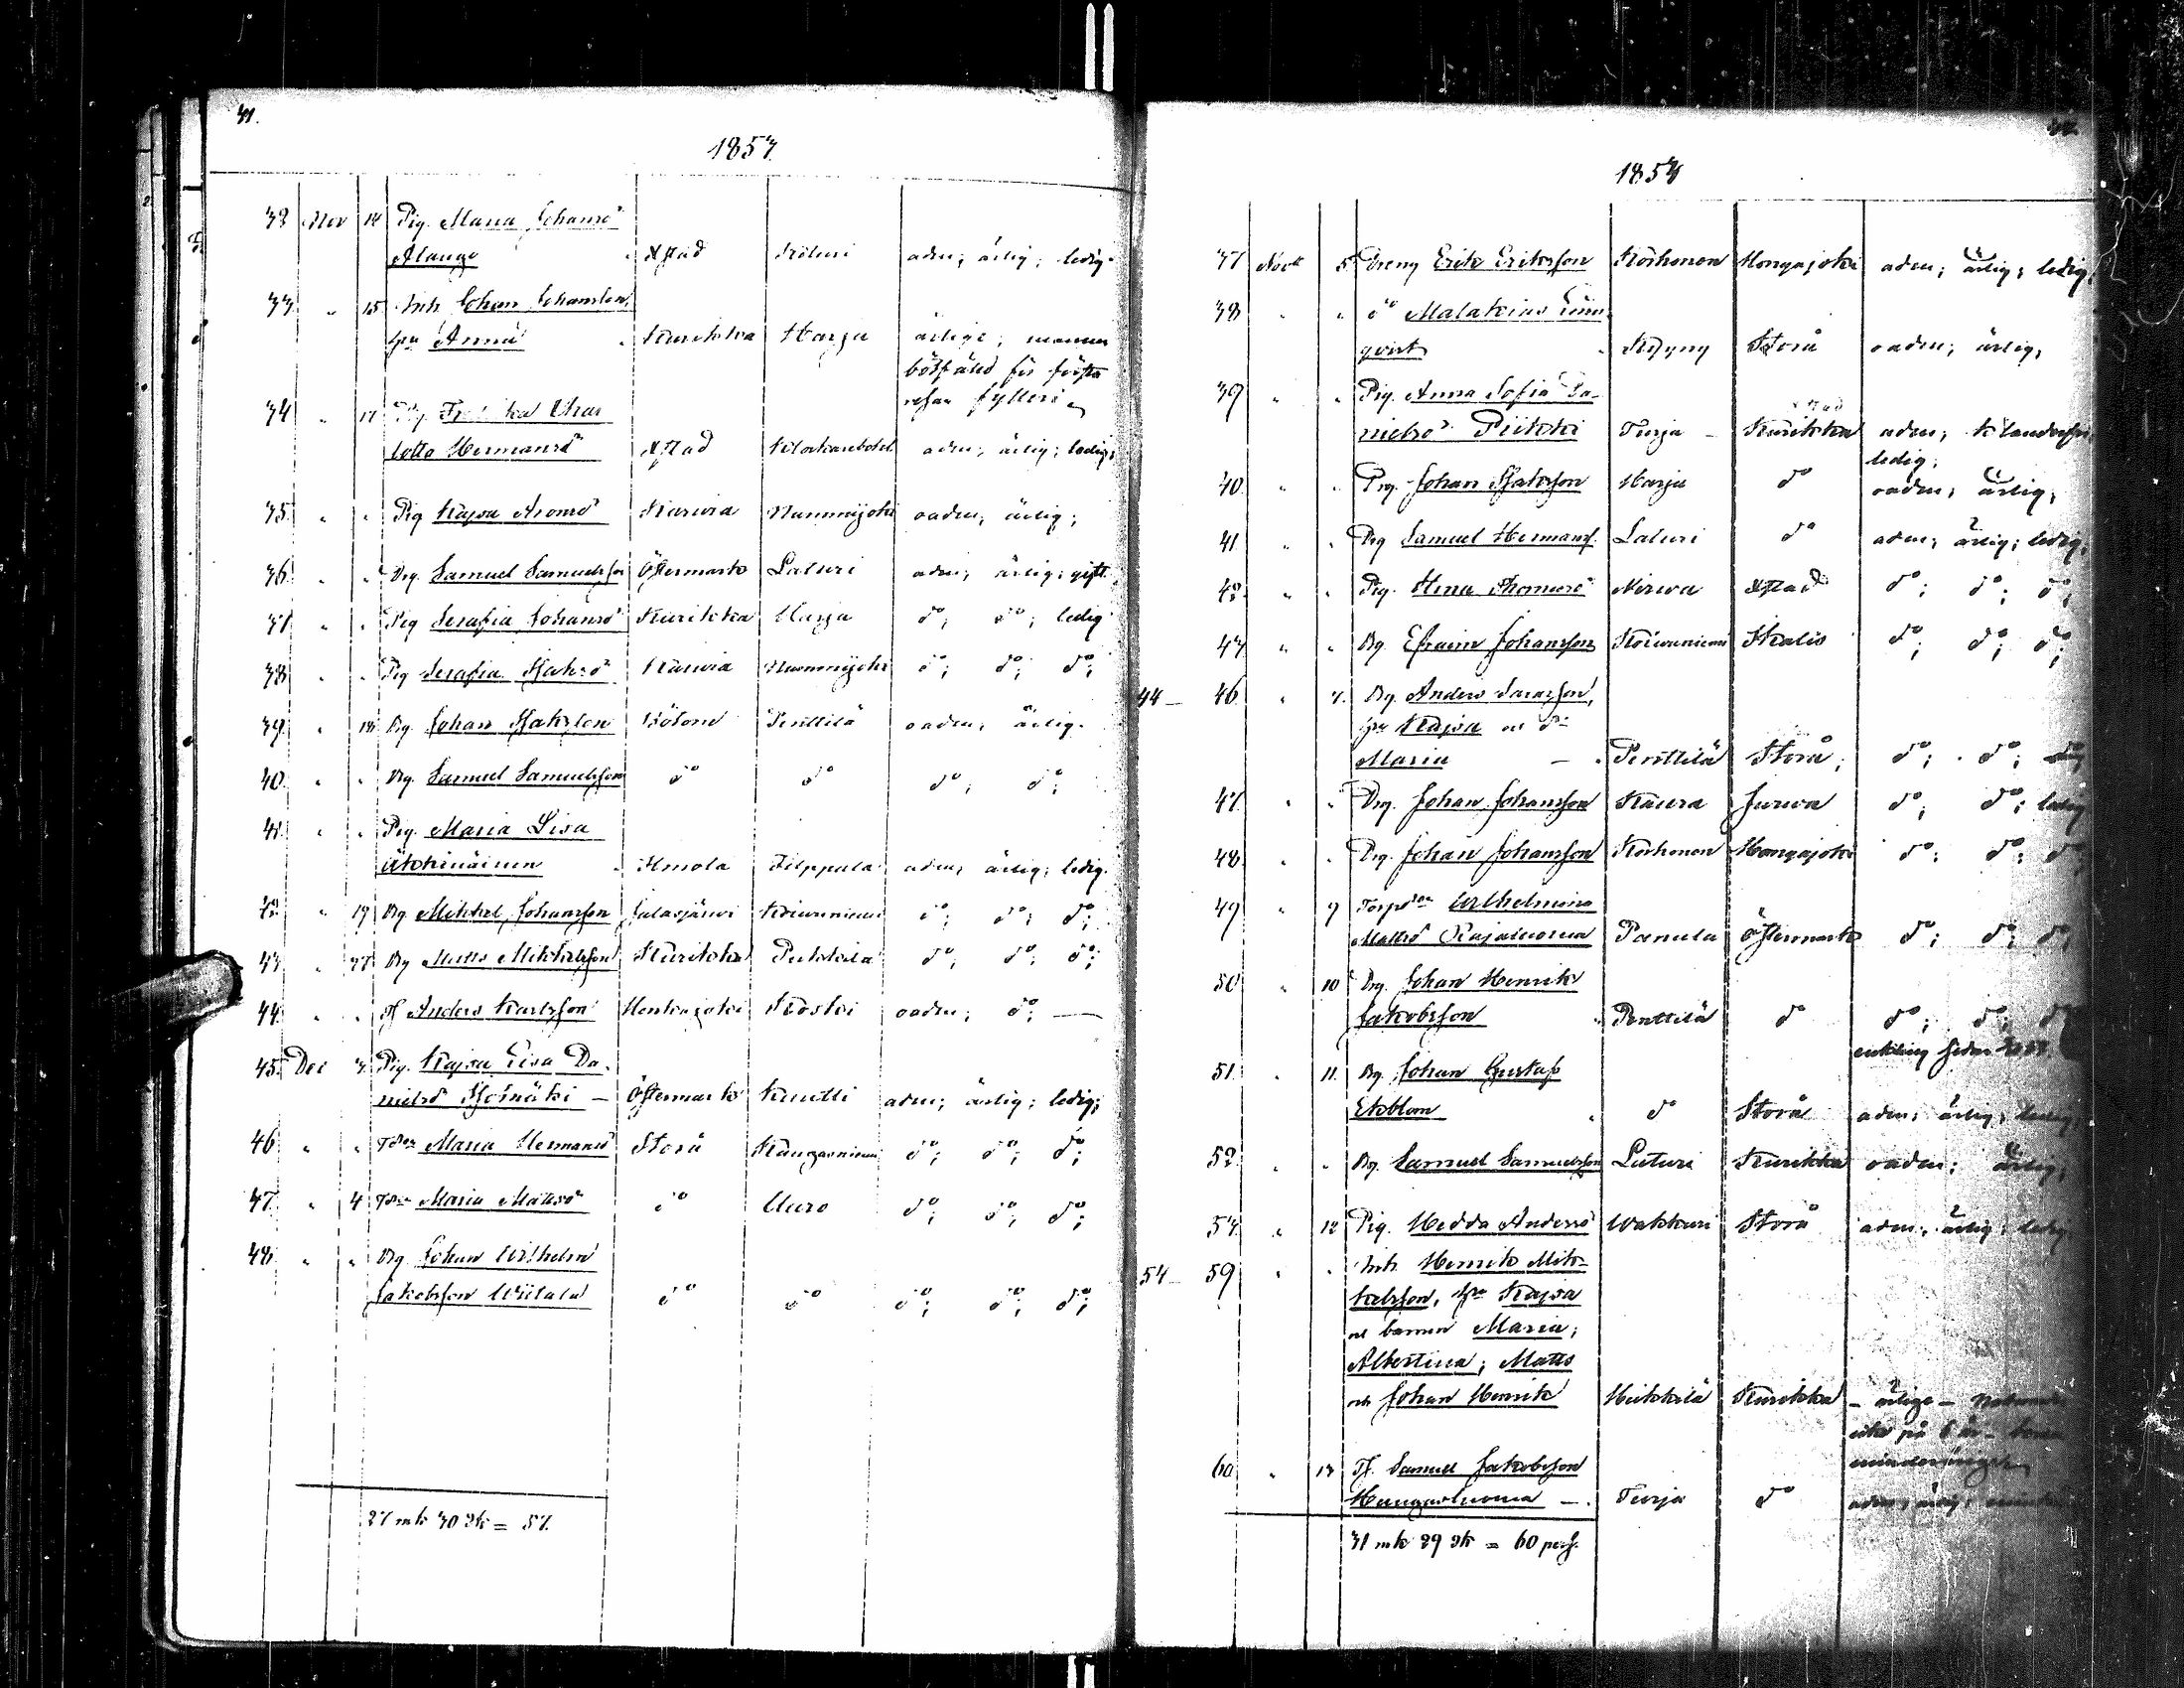 31.
1853.
32 Nov 14 Pig. Maria Johansdr
Alange X stad Köluri aden; ärlig; ledig.
33 " 15 Inh Johan Johansson,
hu Anna Kurikka Harja ärlige; mannen
bötfäld för första
resan fylleri
34 " 17 Pig. Fredrika Char
lotta Hermansdr X stad Klockarebolet aden; ärlig; ledig;
35. " " Pig Kajsa Aronsdr Karvia Nummijoki oaden; ärlig;
36. " " Drg. Samuel Samuelsson Östermark Laturi aden; ärlig; gift.
37. " " Pig Serafia Johansdr Kurikka Harja do; do; ledig
38 " " Pig Serafia Isaksdr Karvia Nummijoki do; do; do;
39. " 18 Drg. Johan Isaksson Bötom Penttilä oaden; ärlig.
40. " " Drg. Samuel Samuelsson do do do; do;
41. " " Pig. Maria Lisa
Ilmola Filppula aden; ärlig; ledig.
42. " 19 Drg Mikkel Johansson Jalasjärvi Koivuniemi do; do; do;
43 " 27 Drg Matts Mikkelsson Kurikka Pukkila do; do; do;
44. " " If Anders Karlsson Honkajoki Koski oaden; do;
45. Dec 3. Pig. Kajsa Lisa Da-
nielsdr Isomäki — Östermark Knutti aden; ärlig; ledig;
46 " " Tdr Maria Hermansdr Storå Kangasniemi do; do; do;
47. " 4 Tdr Maria Mattsdr do Uuro do; do; do;
48 " " Drg Johan Wilhelm
Jakobsson Wiitala do do do; do; do;
27 mk 30 qk = 57.
1854
37 Nov 5 Dreng Erik Eriksson Korhonen Hongajoki aden; ärlig; ledig;
38 " " do Malakias
qvist Kyyny Storå oaden; ärlig;
39 " " Pig. Anna Sofia Da-
X stad
nielsdr Piikki Turja - Kurikka aden;
ledig;
40. " " Drg. Johan Isaksson Harja do oaden; ärlig;
41. " " Drg Samuel Hermansf. Laturi do aden; ärlig; ledig;
42. " " Pig. Stina Thomasdr Nirva X stad do; do; do;
43. " " Drg. Efraim Johansson Koivuniemi Ikalis do; do; do;
44 — 46. " 7. Drg. Anders
hu Kajsa och dr
Maria — Penttilä Storå; do; do; do;
47. " " Drg. Johan Johansson Kaura Jurva do; do; ledig
48. " " Drg. Johan Johansson Korhonen Hongajoki do; do; do;
49 " 9 Torpdr Wilhelmina
Mattsdr Rajaluoma Panula Östermark do; do; do;
50. " 10 Drg. Johan Henrik
Jakobsson Penttilä do do; do; do
enkling sedan
51. " 11. Drg. Johan Gustaf
Ekblom do Storå aden; ärlig; ledig;
52. " " Drg. Samuel Samuelsson Laturi Kurikka oaden; ärlig;
53. " 12 Pig. Hedda Andersdr Wakkuri Storå aden; ärlig; ledig
54 — 59 " " Inh. Henrik Mik-
kelsson, hu Kajsa
och barnen Maria;
Albertina; Matts
och Johan Henrik Heikkilä Kurikka - ärlige -
på 6 år - barnen
minderårige
60. " 13 If. Samuel Jakobsson
Hangasluoma — Turja do aden; ärlig;
31 mk 29 qk = 60 pers.